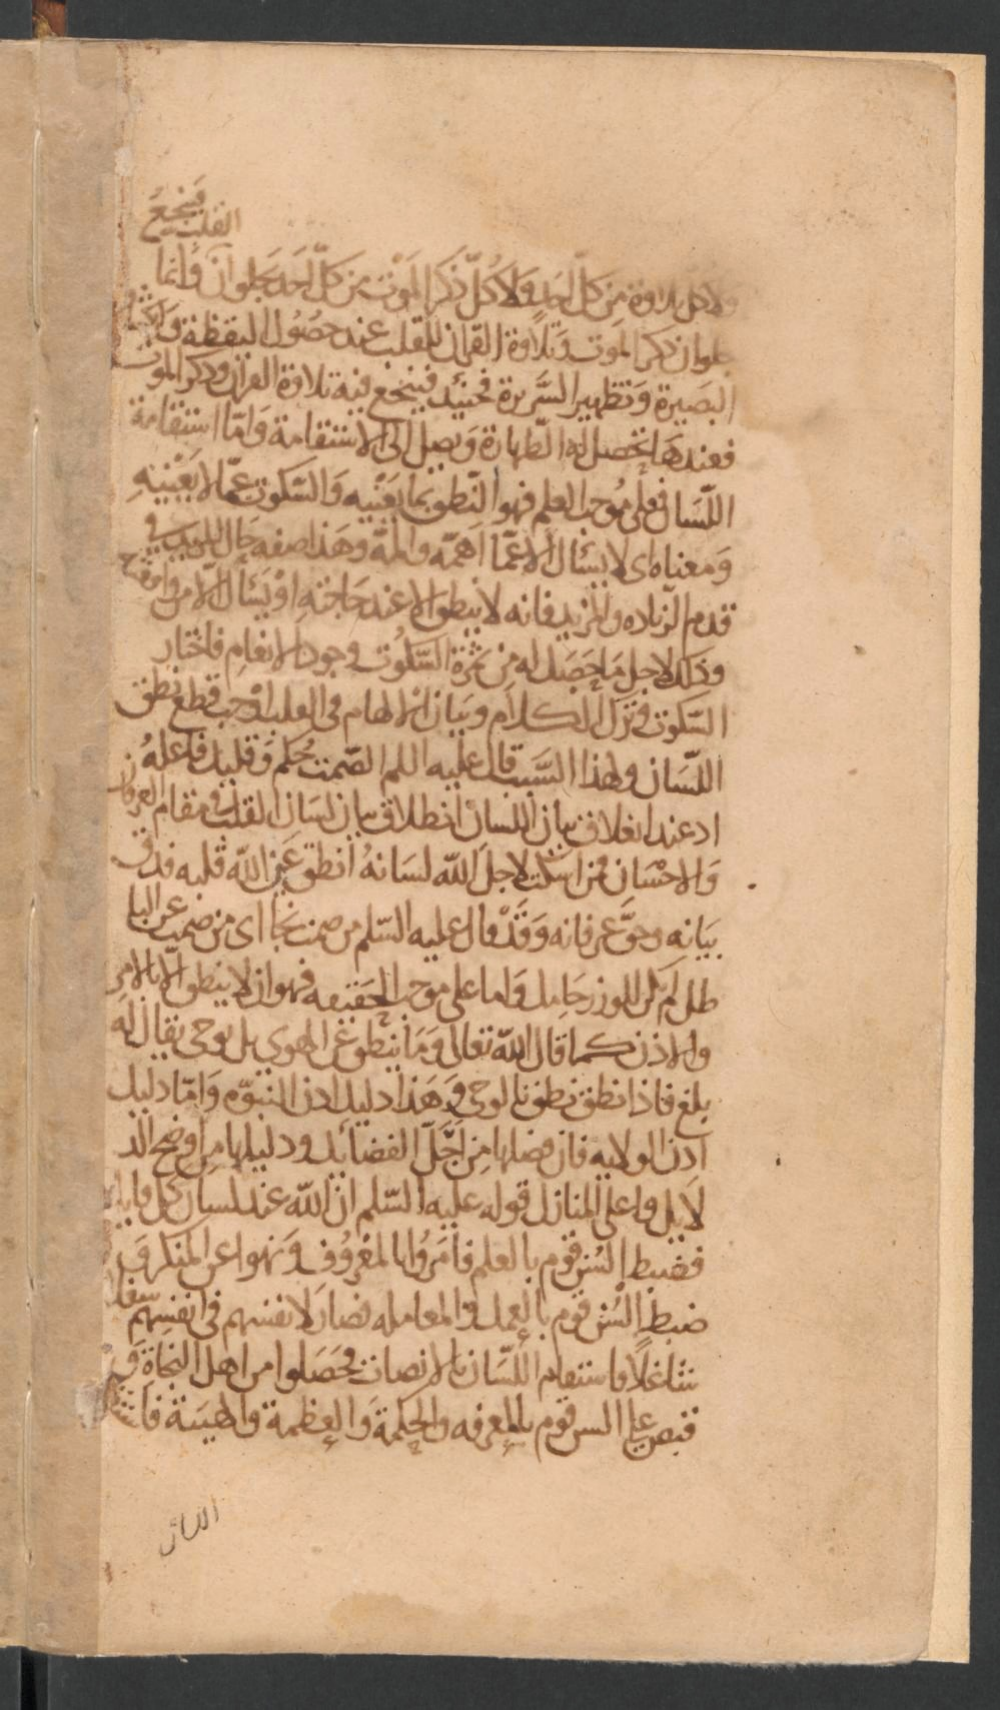 فينجع
القلب
ولا كل تلاوة من كل احد ولا كل ذكر الموت من كل احد يجلوان وانما
يجلوان ذكر الموت وتلاوة القران للقلب عند حصول اليقظة
البصيرة وتطهير السريرة فحينئد فينجع فيه تلاوة القران وذكر الموت
فعندها تحصل له الطهارة ويصل الى الاستقامة وَامّا استقامة
اللّسَان فعلى مُوجب العلم فهو النّطق بما يَعْنيه وَالسّكوت عمّا لا يَعْنيهِ
وَمعناه اى لا يسئال الا عمّا اهمّه والمّه وهَذا صفه حال
قدم الزياده والمزيد فانه لا ينطق الا عند حَاجته اوْ يسئال الامر
وذلك لاجل مَا حصَل له من ثمرة السّكوت وجود الانعام فاختار
السّكوت فى ترك الكلام وبيان الالهام فى القلب اوْجب قطع نطق
اللّسَان ولهذا السّبب قال عليه السلم الصّمت حُكم وَقليل فاعلهُ
اد عند انغلاق بيان اللسان انطلاق بيان لسَان القلب فى مقام العرفان
وَالاحْسَان فمن اسكت لاجل اللّه لسَانهُ انطق عن اللّه قلبه فدق
بيَانه وحقّ عرفانه وَقَدْ قال عليه السّلم من صمت نجا اى من صمت عن البا
طل لم يكن للوزر حَامِل وَاما على موجب الحقيقه فهو ان لا ينطق الا بالامر
والاذن كما قال اللّه تعالى وَمَا ينطق عَن الهوى بل يوحى يقال له
بلغ فاذا نطق نطق بالوحى وَهَذا دليل اذن النبوّه وَامّا دليل
اذن الولايه فان فضلها من اجَلّ الفضايل ودليلها من اوضح الد
لايل واعلى المنازل قوله عليه السّلم انّ اللّه عند لسان كل قايل
فضبط السُن قوم بالعلم فامَروُا بالمعْروُف وَنهوا عن المنكر وَ
ضبط السُن قوم بالعمل والمعامله فصَار لانفسهم فى انفسهم
شاغلاً فاستقام اللّسَان بالانصات فحَصَلوا من اهل النجاة وَ
قبض على السن قوم بالمعرفه والحكمة وَالعظمة والهيبَة
اللسان